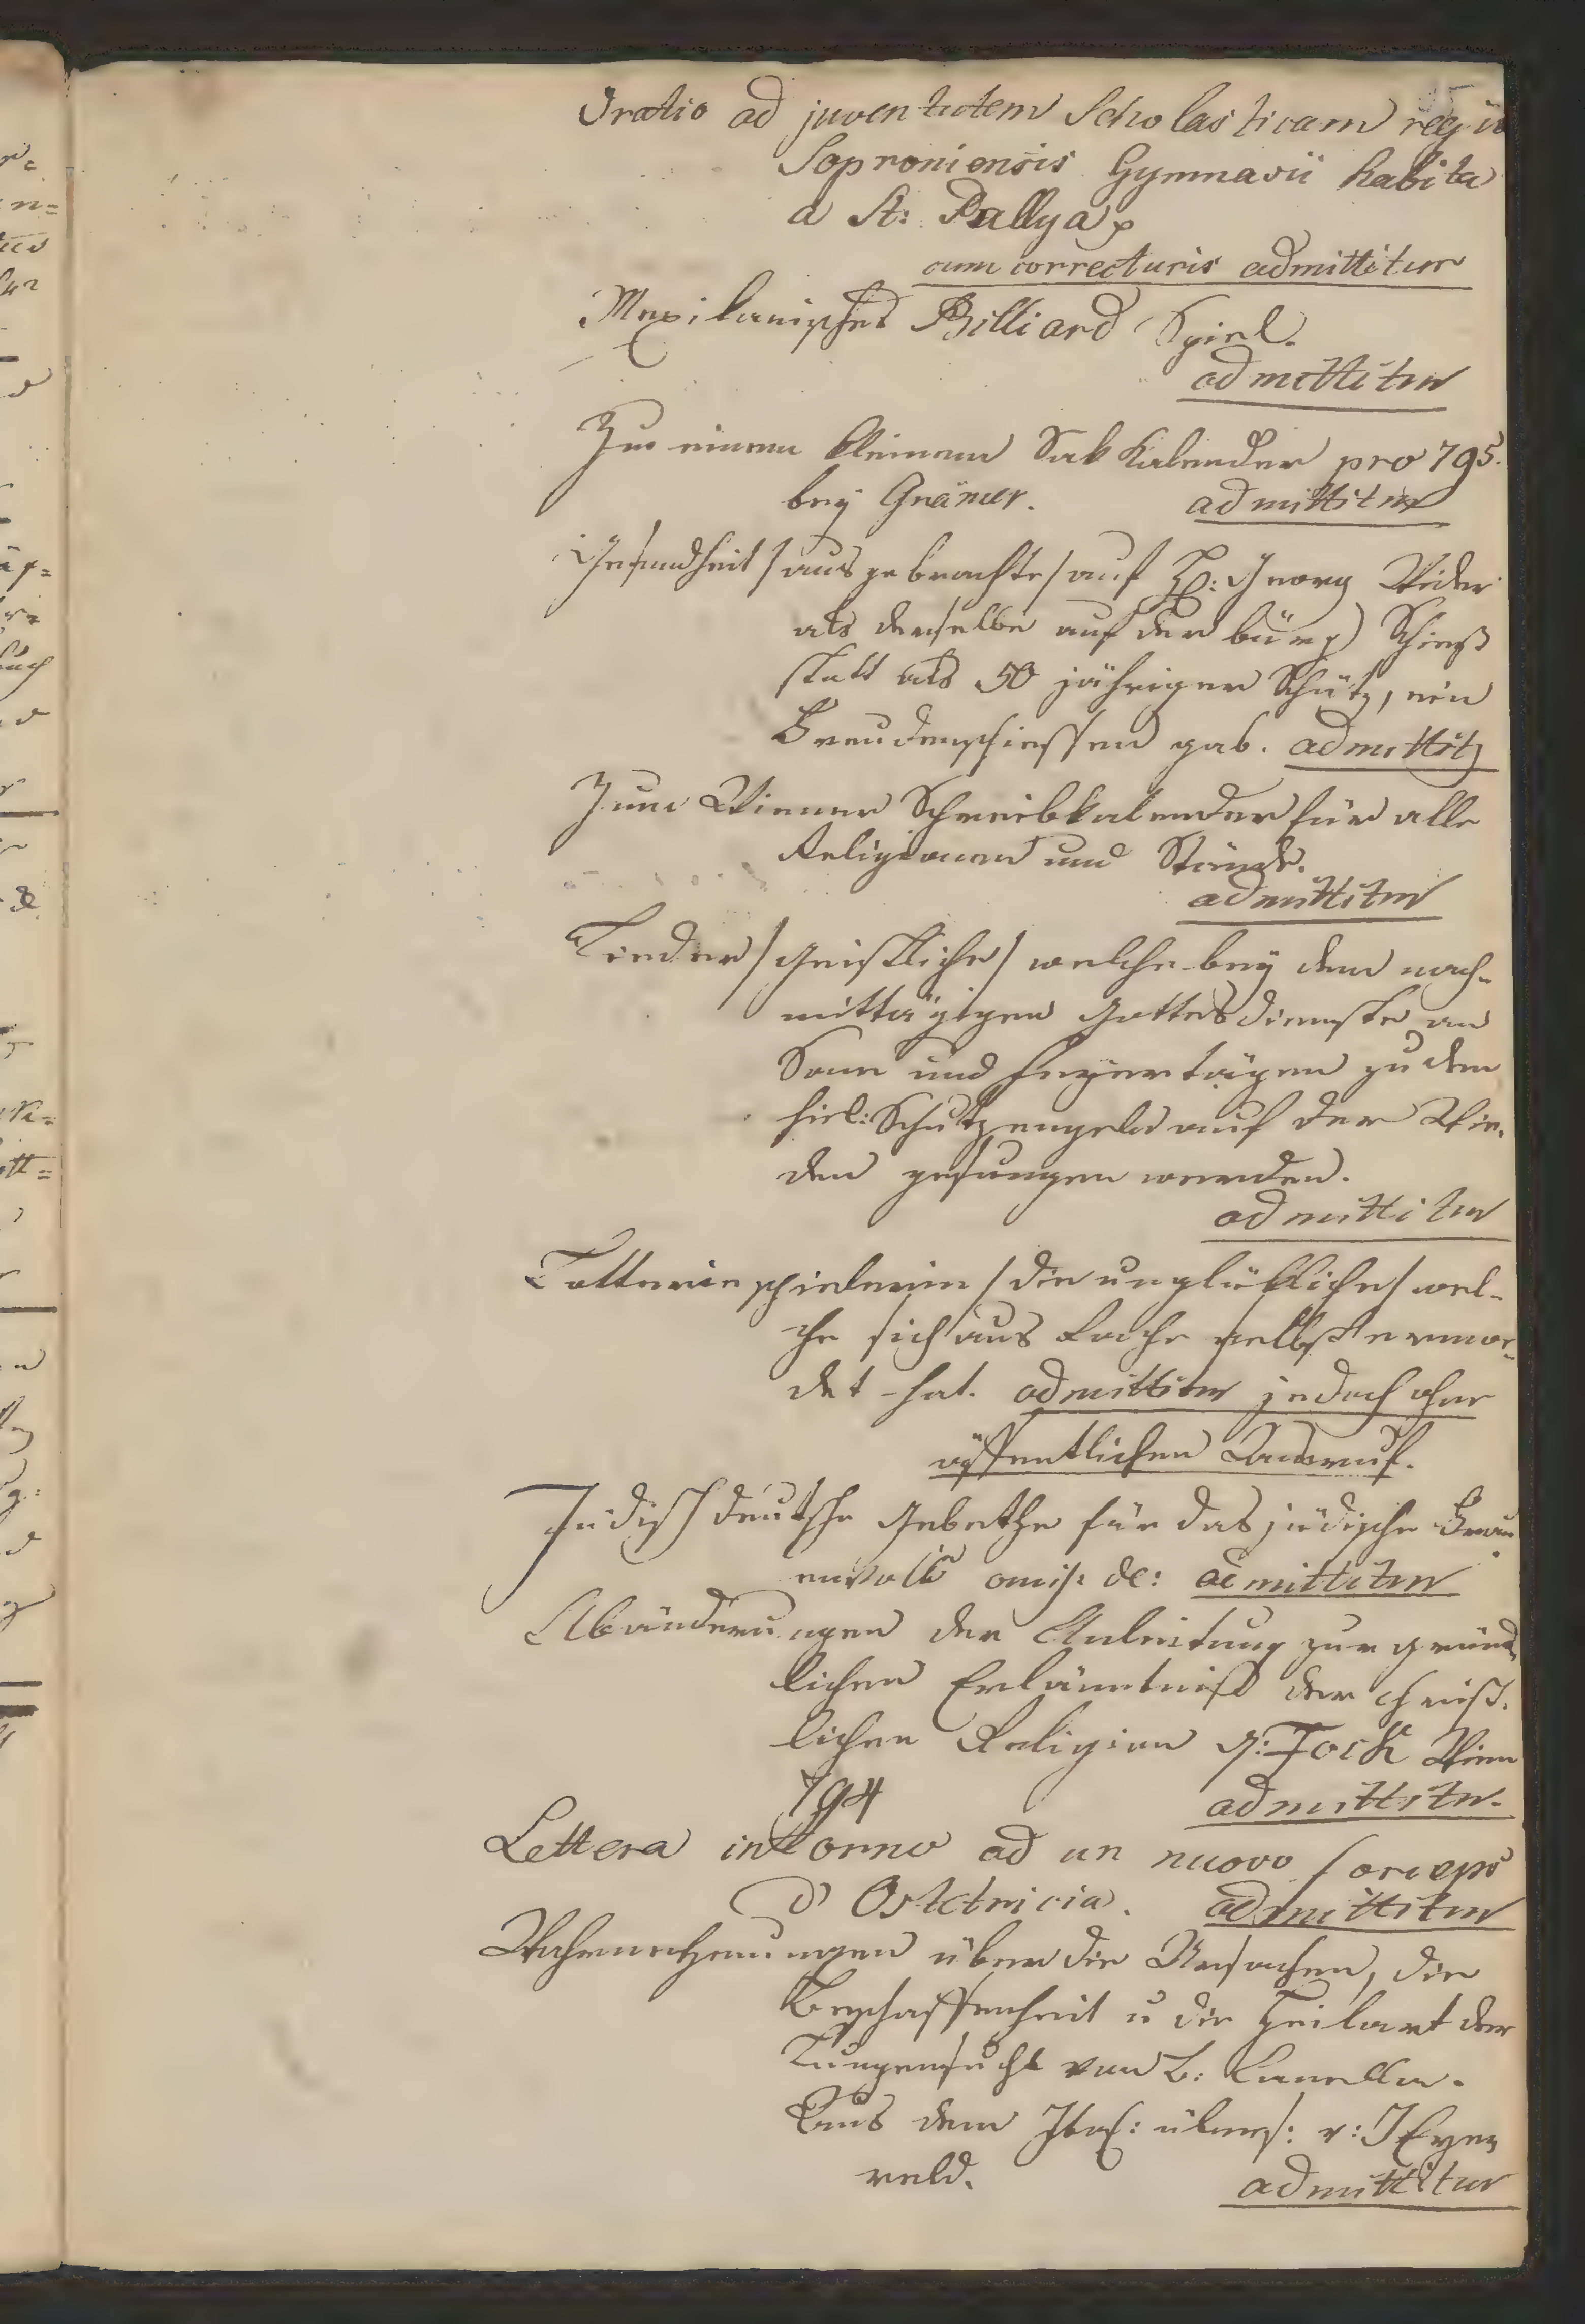 Oratio ad juventutem Scholasticam regii
Soproniensis Gymnasii habita
a St: Pallya p
cum correcturis admittitur
Mexikanisches Billiard Spiel.
admittitur
Zu einem kleinen Sak Kalender pro 795.
bey Grämer. admittitur
Gesundheit /ausgebrachte/ auf H: Georg Wider
als derselbe auf der bürg) Schieß
statt als 50 jähriger Schütz, ein
Freudenschiessen gab. admittit
Zum Wiener Schreibkalender für alle
Religionen und Stände.
admittitur
Lieder /geistliche/ welche bey dem nach-
mittägigen Gottesdienste an
Sonn und Feyertägen zu den
heil: Schutzengeln auf der Wie-
den gesungen werden.
admittitur
Lotteriespielerin /die unglükliche/ wel-
che sich aus Rache selbst ermor-
det hat. admittitur jedoch ohne
öffentlichen Ausruf.
Jüdisch deutsche Gebethe für das jüdische Frau
envolk omis: de: admittitur
Abänderungen der Anleitung zur gründ
lichen Erkänntniß der christ-
lichen Religion v: Tock Wien
794 admittitur.
Lettera intorno ad un nuovo forceps
d'Ostetricia. admittitur
Wahrnehmungen über die Ursachen, die
Beschaffenheit u die Heilart der
Lungensucht von B: Lanella.
Aus dem Ital: übers: v: J Eyer
reld. admittitur